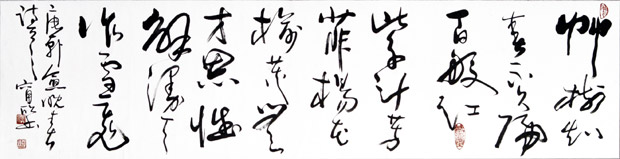 艸樹知
春不久歸
百般红
紫斗芳
菲楊花
榆莢無
才思惟
解漫天
作雪飛
唐韓愈晚春
詩